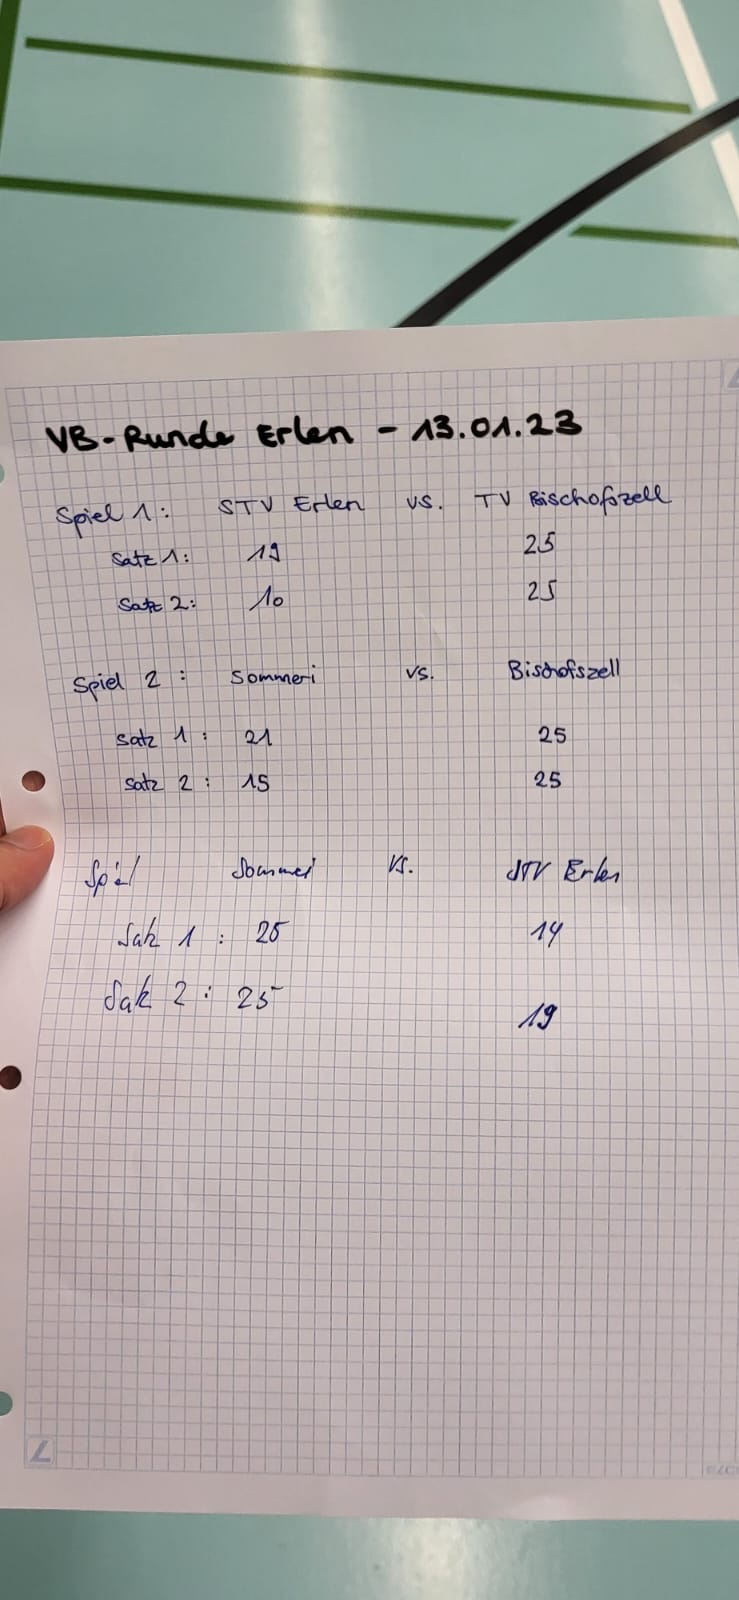 VB-Runde Erlen - 13.01.23
Spiel 1: STV Erlen vs. TV Bischofszell
Satz 1: 19 25
Satz 2: 10 25
Spiel 2: Sommeri vs. Bischofszell
Satz 1: 21 25
Satz 2: 15 25
Spiel Sommeri vs. STV Erlen
Satz 1: 25 14
Satz 2: 25 19